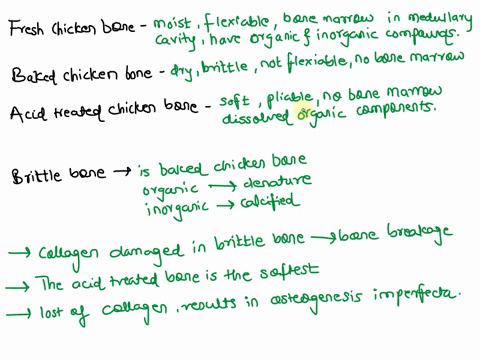 Fresh chicken bone - moist, flextable, bone marrow in medullary
cavity, have organic & inorganic compounds.
Baked chicken bone - dry, brittle, not flexiable, no bone marrow
Acid treated chicken bone - soft, pliable, no bone marrow
dissolved organic components.
Brittle bone → is baked chicken bone
organic → denature
inorganic → calcified
→ collagen damaged in brittle bone → bone breakage
→ The acid treated bone is the softest
→ lost of collagen, results in osteogenesis imperfecta.